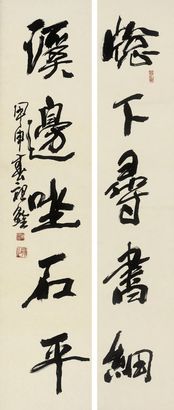 牕下尋書細
溪邊坐石平
甲申春